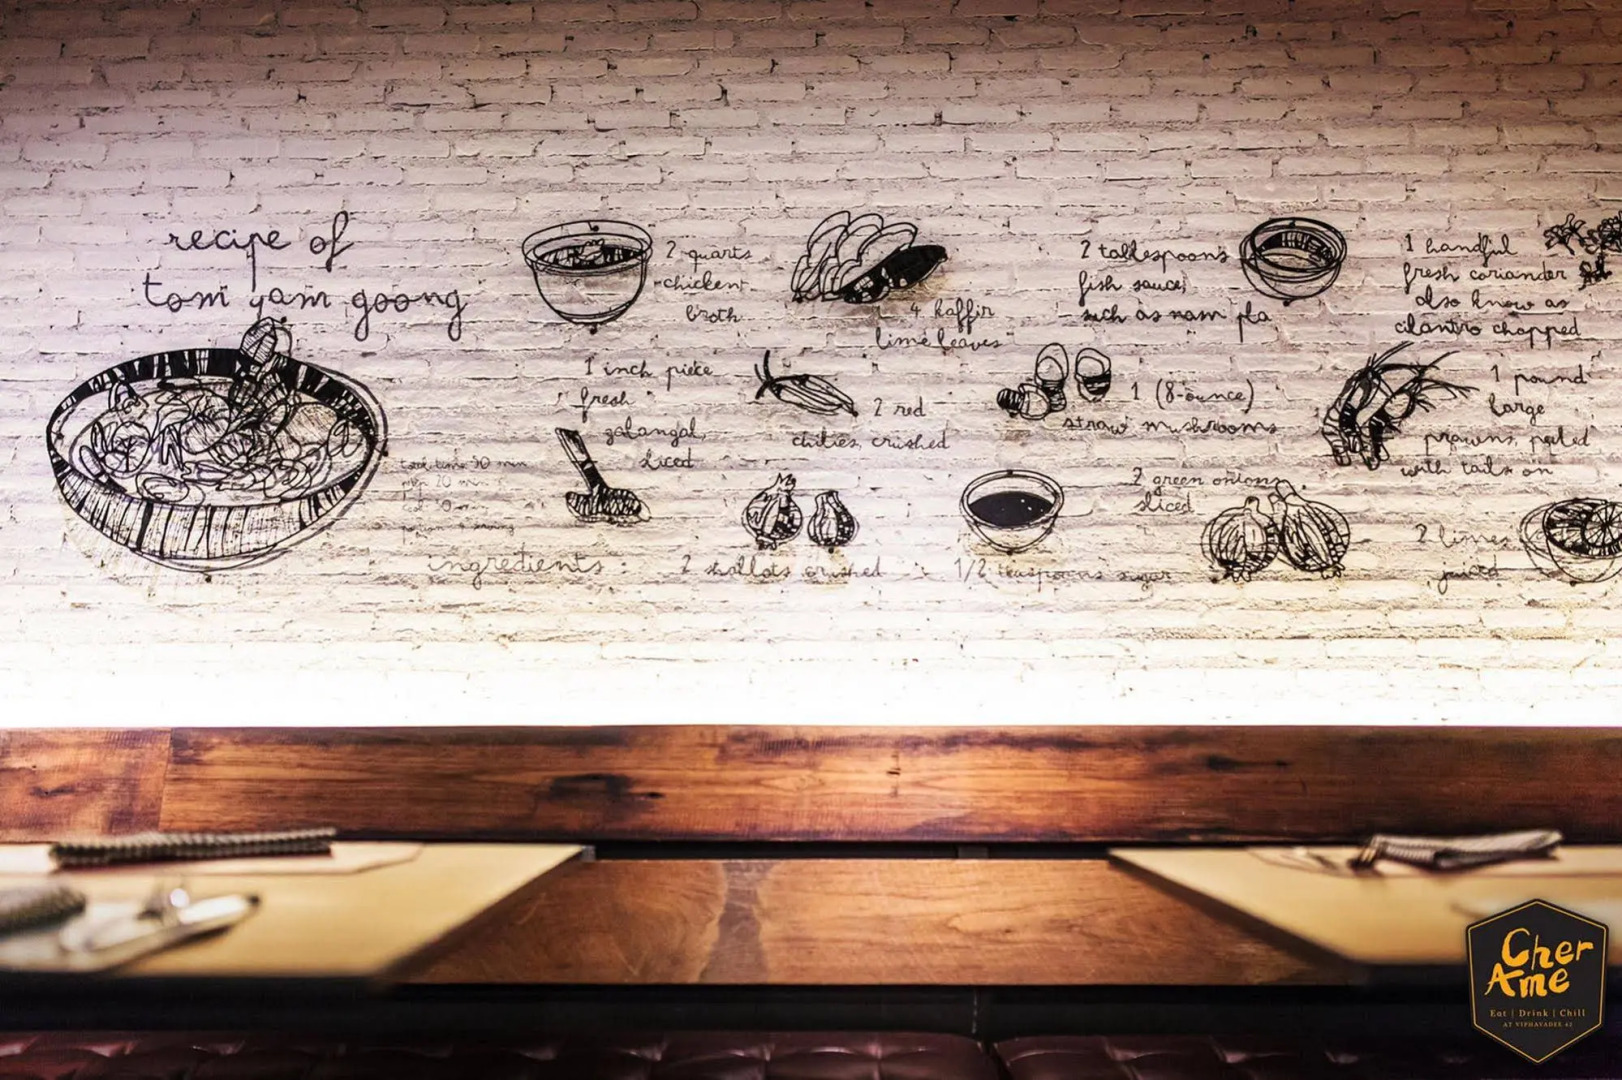 recipe of
tom yam goong
total time 30 min
prep 20 min
ingredients :
2 quarts
chicken
broth
4 kaffir
lime leaves
2 tablespoons
fish sauce,
such as nam pla
1 handful
fresh coriander
also know as
cilantro chopped
1 inch piece
fresh
galangal,
sliced
2 red
chilies, crushed
1 (8-ounce)
straw mushrooms
1 pound
large
prawns, peeled
with tails on
2 shallots crushed
1/2 teaspoons sugar
2 green onions
sliced
2 limes
juiced
Cher
Ame
Eat | Drink | Chill
AT VIPHAVADEE 42